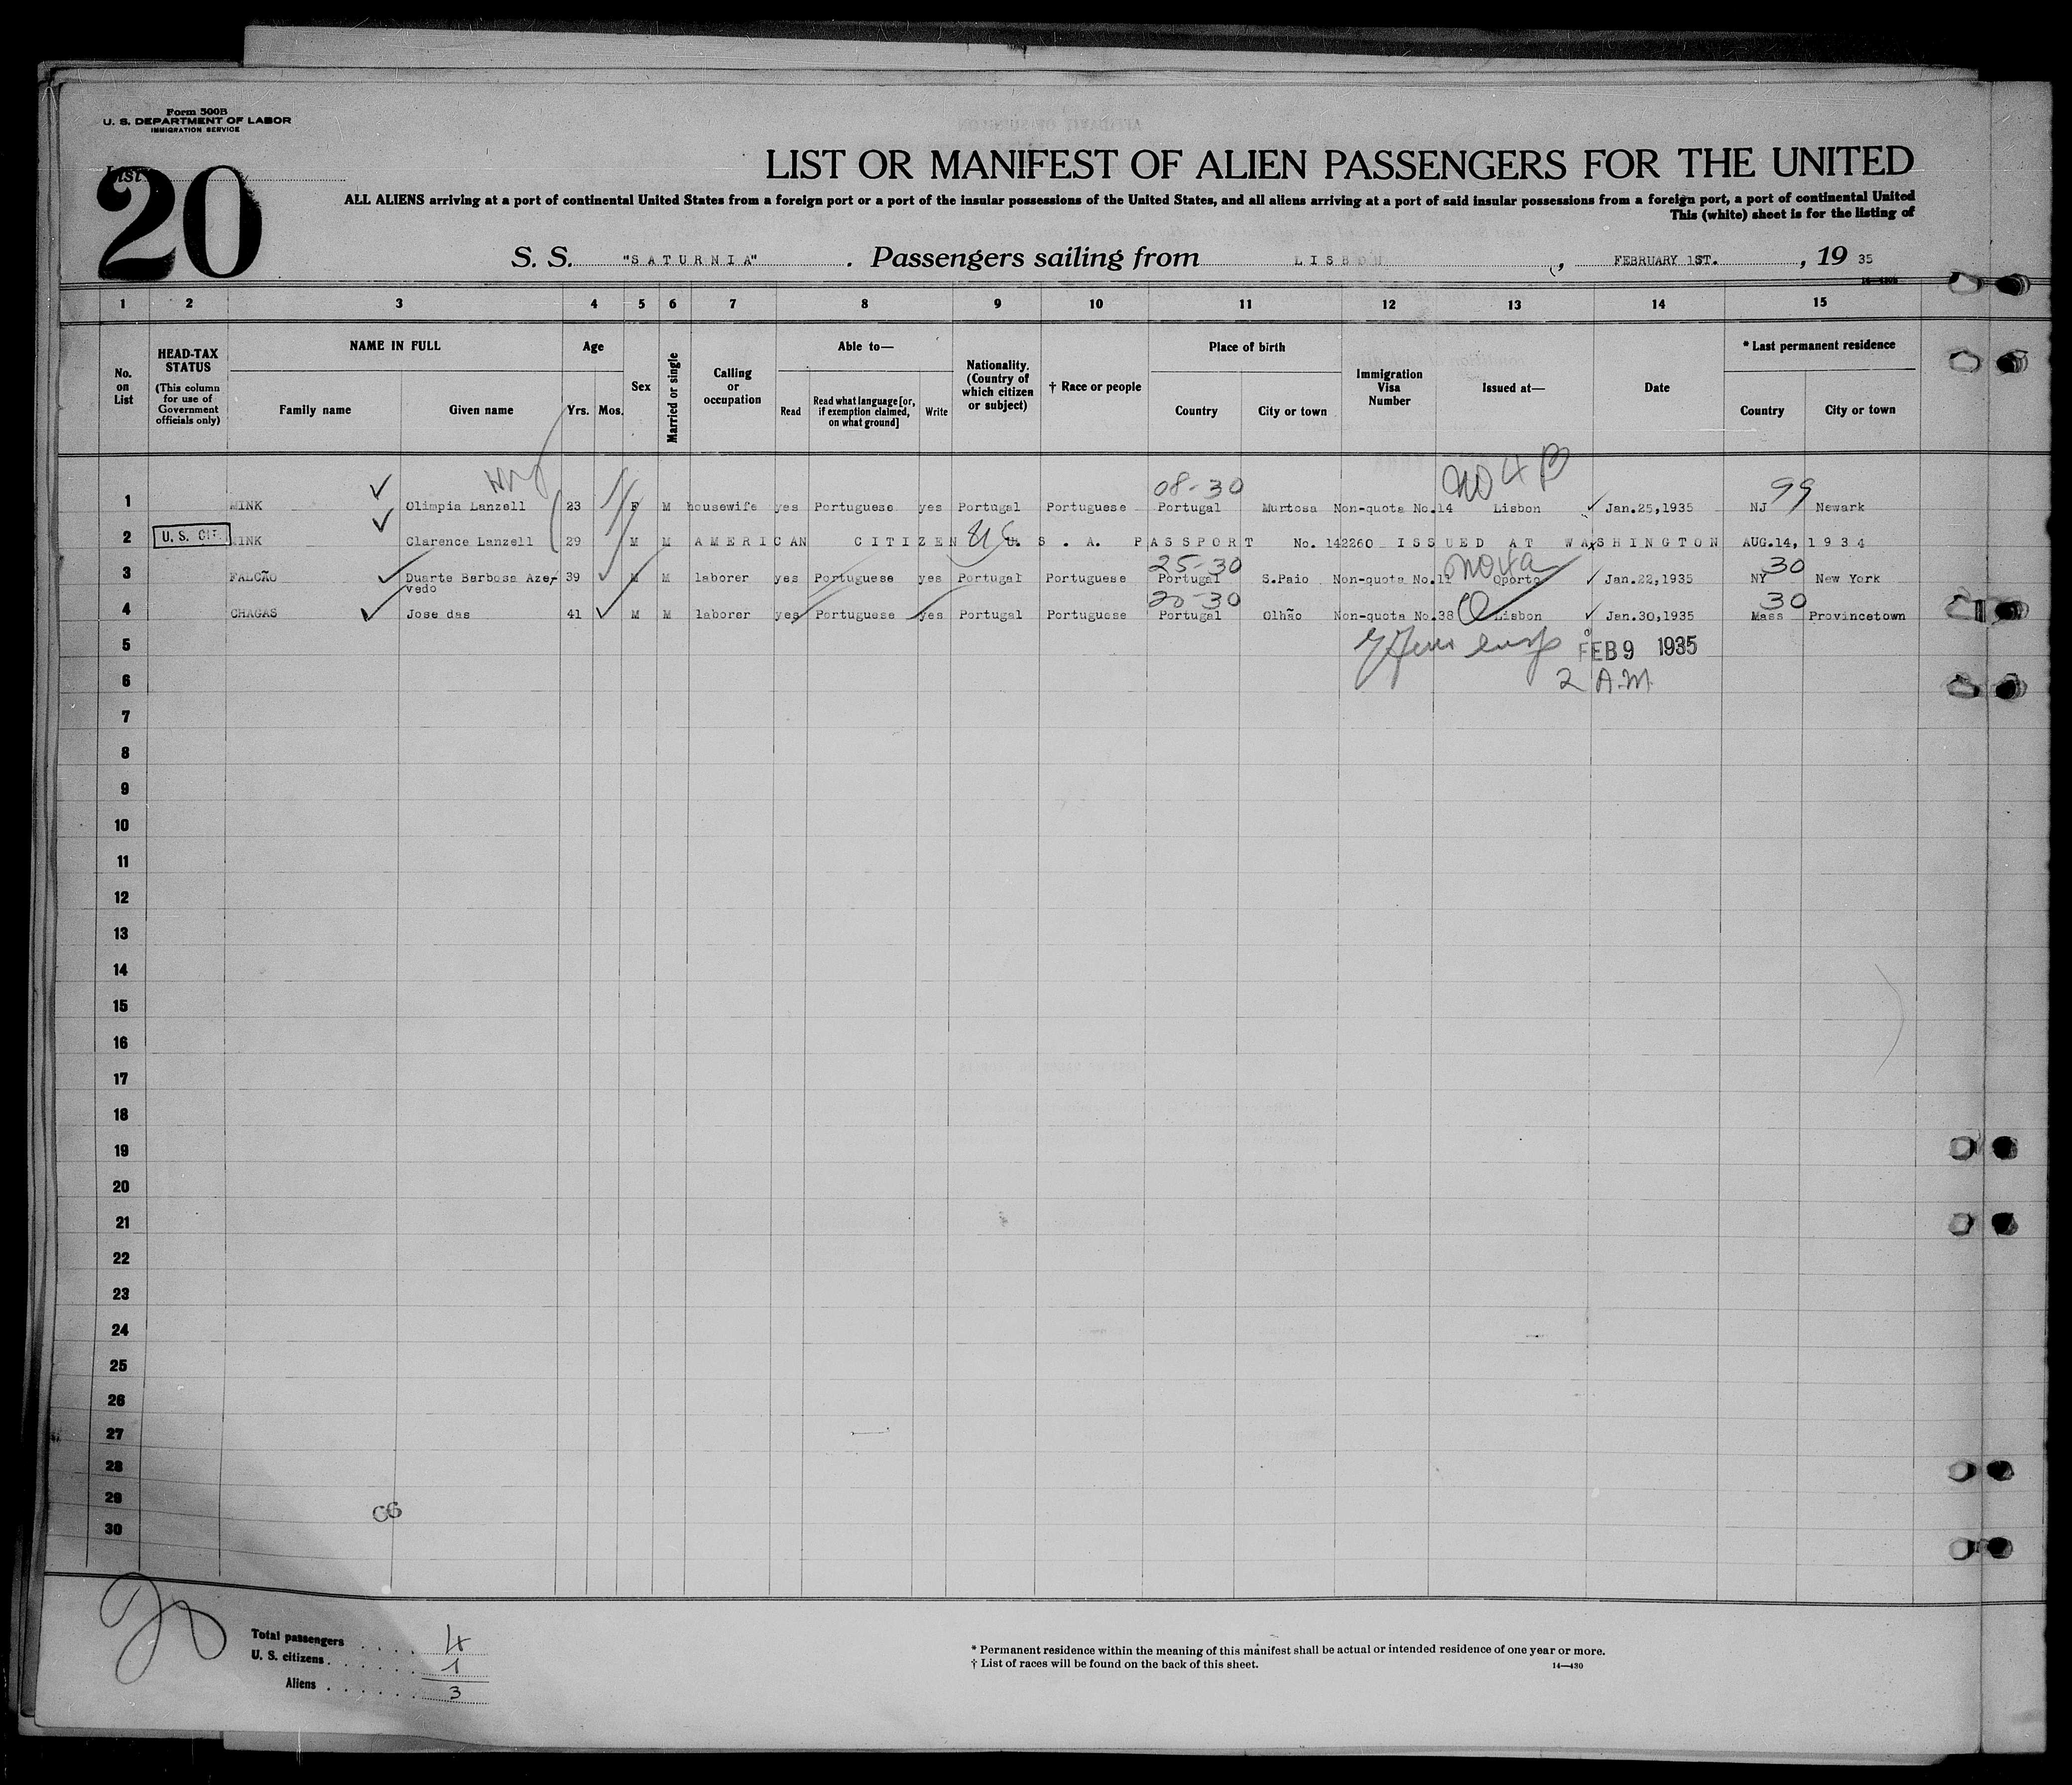 Form 500B
U. S. DEPARTMENT OF LABOR
IMMIGRATION SERVICE
List
20
LIST OR MANIFEST OF ALIEN PASSENGERS FOR THE UNITED
ALL ALIENS arriving at a port of continental United States from a foreign port or a port of the insular possessions of the United States, and all aliens arriving at a port of said insular possessions from a foreign port, a port of continental United
This (white) sheet is for the listing of
S. S. "SATURNIA". Passengers sailing from LISBON, FEBRUARY 1ST., 19 35
1 2 3 4 5 6 7 8 9 10 11 12 13 14 15
No. on List
HEAD-TAX STATUS (This column for use of Government officials only)
NAME IN FULL Family name Given name
Age Yrs. Mos.
Sex
Married or single
Calling or occupation
Able to— Read Read what language [or, if exemption claimed, on what ground] Write
Nationality. (Country of which citizen or subject)
† Race or people
Place of birth Country City or town
Immigration Visa Number
Issued at—
Date
* Last permanent residence Country City or town
08-30 99
1 MINK Olimpia Lanzell 23 F M housewife yes Portuguese yes Portugal Portuguese Portugal Murtosa Non-quota No.14 Lisbon Jan.25,1935 NJ Newark
2 U. S. CIT. MINK Clarence Lanzell 29 M M AMERICAN CITIZEN U. S. A. PASSPORT No. 142260 ISSUED AT WASHINGTON AUG.14, 1934
25-30 30
3 FALCÃO Duarte Barbosa Azevedo 39 M M laborer yes Portuguese yes Portugal Portuguese Portugal S.Paio Non-quota No.11 Oporto Jan.22,1935 NY New York
20-30 30
4 CHAGAS Jose das 41 M M laborer yes Portuguese yes Portugal Portuguese Portugal Olhão Non-quota No.38 Lisbon Jan.30,1935 Mass Provincetown
5 FEB 9 1935
6 2 A.M.
7
8
9
10
11
12
13
14
15
16
17
18
19
20
21
22
23
24
25
26
27
28
29
30
20
Total passengers . . . . 4
U. S. citizens . . . . . 1
Aliens . . . . . . 3
* Permanent residence within the meaning of this manifest shall be actual or intended residence of one year or more.
† List of races will be found on the back of this sheet. 14—430